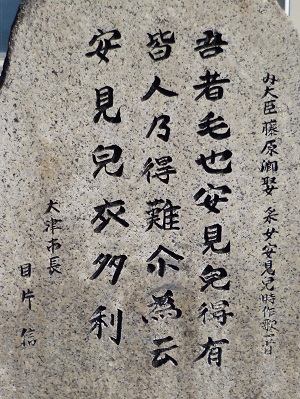 内大臣藤原卿娶采女安見児時作歌一首
吾者毛也安見児得有
皆人乃得難尓為云
安見児衣多利
大津市長
目片信